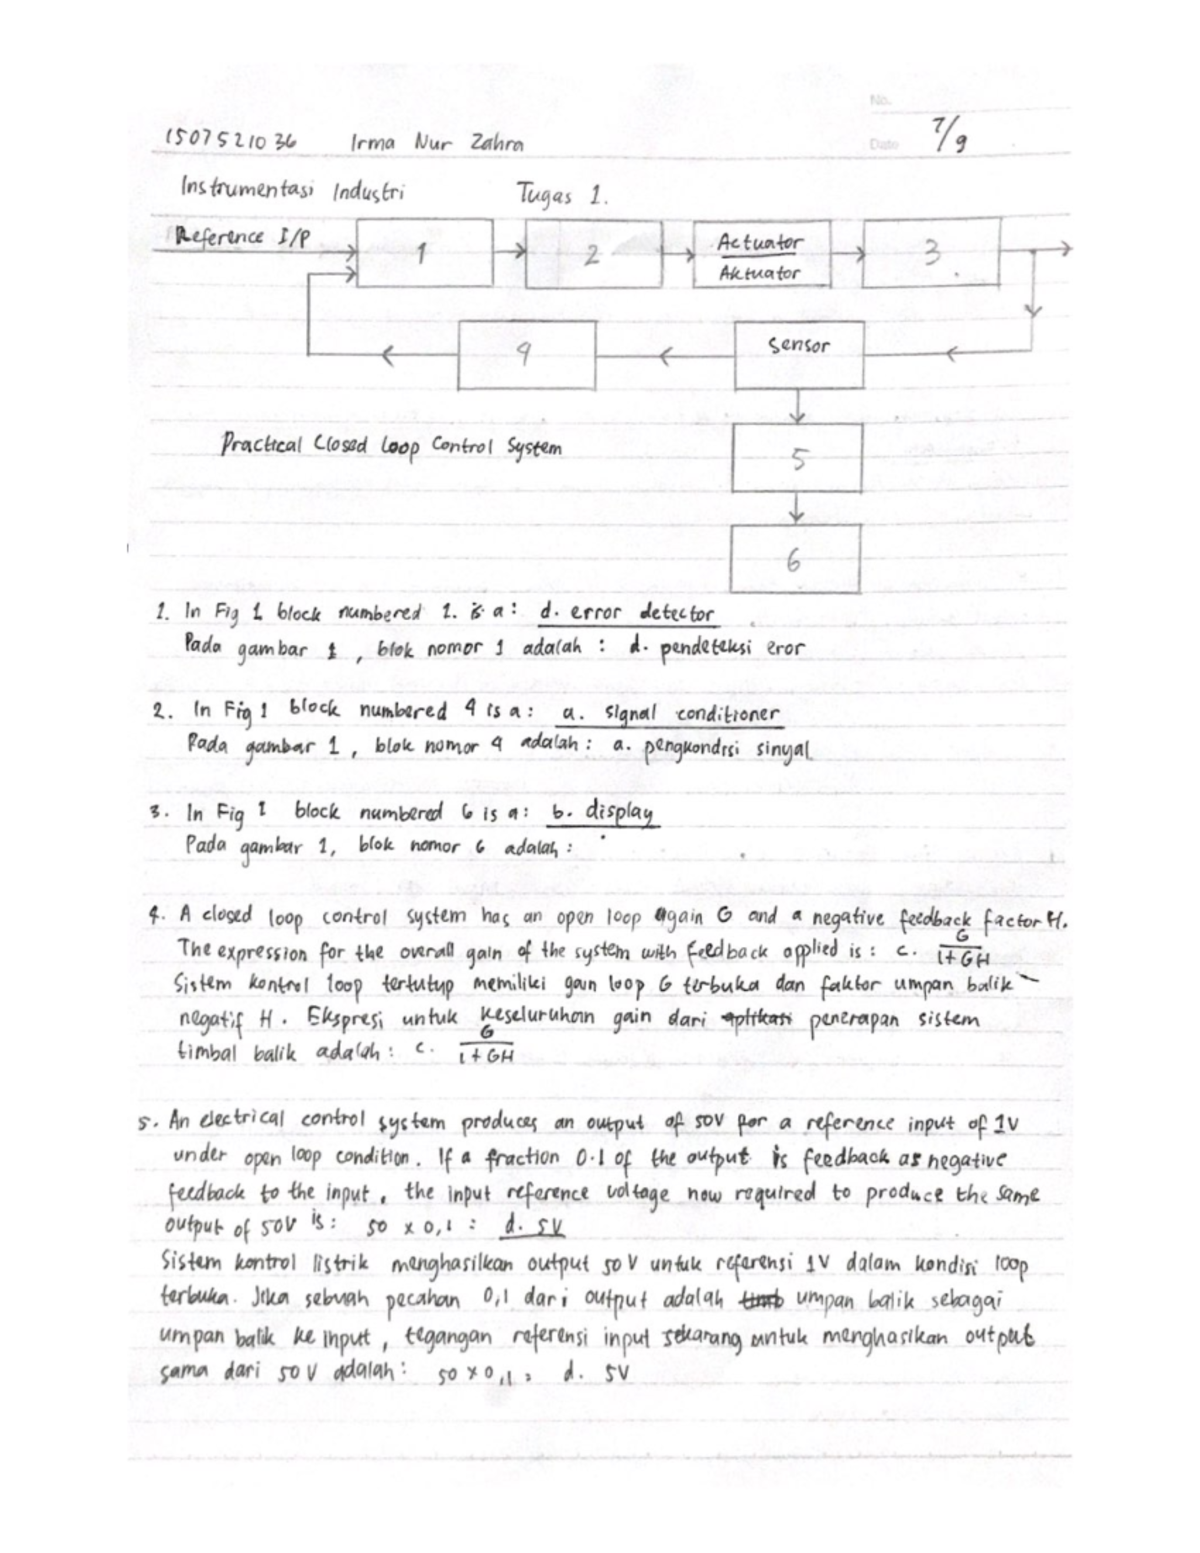 No.
Date 7/9
1507521036 Irma Nur Zahra
Instrumentasi Industri Tugas 1.
Reference I/P
1
2
Actuator
Aktuator
3
4
Sensor
Practical Closed Loop Control System
5
6
1. In Fig 1 block numbered 1. is a : d. error detector
Pada gambar 1 , blok nomor 1 adalah : d. pendeteksi eror
2. In Fig 1 block numbered 4 is a : a. signal conditioner
Pada gambar 1 , blok nomor 4 adalah : a. pengkondisi sinyal
3. In Fig 1 block numbered 6 is a : b. display
Pada gambar 1, blok nomor 6 adalah :
4. A closed loop control system has an open loop gain G and a negative feedback factor H.
The expression for the overall gain of the system with feedback applied is : c. G/1+GH
Sistem kontrol loop tertutup memiliki gain loop G terbuka dan faktor umpan balik
negatif H. Ekspresi untuk keseluruhan gain dari aplikasi penerapan sistem
timbal balik adalah : c. G/1+GH
5. An electrical control system produces an output of 50V for a reference input of 1V
under open loop condition. If a fraction 0.1 of the output is feedback as negative
feedback to the input, the input reference voltage now required to produce the same
output of 50V is : 50 x 0,1 : d. 5V
Sistem kontrol listrik menghasilkan output 50 V untuk referensi 1V dalam kondisi loop
terbuka. Jika sebuah pecahan 0,1 dari output adalah timb umpan balik sebagai
umpan balik ke input, tegangan referensi input sekarang untuk menghasilkan output
sama dari 50 V adalah : 50 x 0,1 = d. 5V